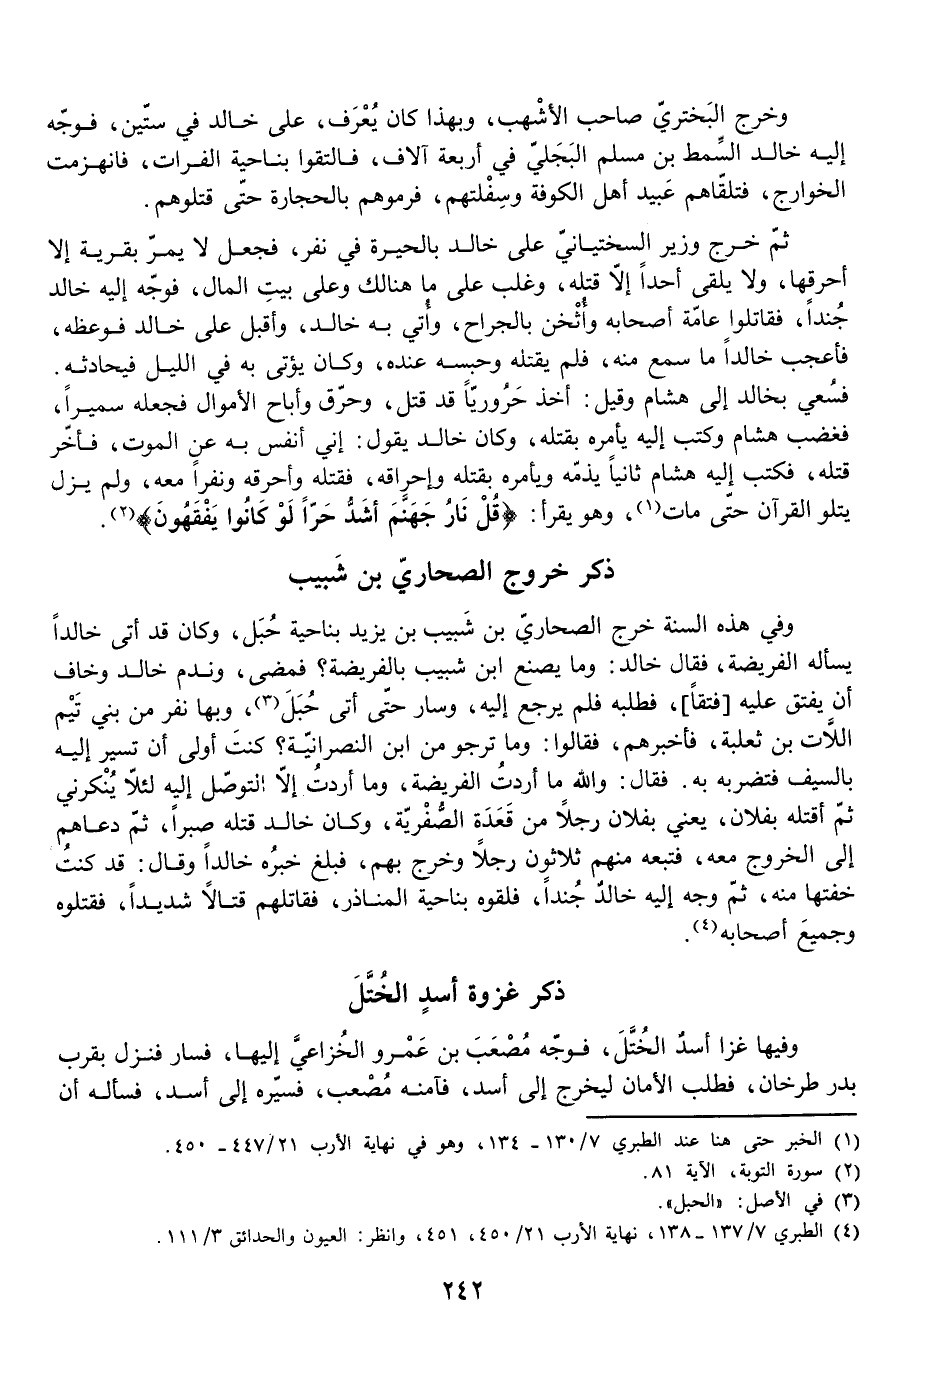 وخرج البَختريّ صاحب الأشْهب، وبهذا كان يُعْرَف، على خالد في ستّين، فوجّه
إليه خالد السِّمط بن مسلم البَجَليّ في أربعة آلاف، فالتقوا بناحية الفرات، فانهزمت
الخوارج، فتلقّاهم عَبيد أهل الكوفة وسِفْلتهم، فرموهم بالحجارة حتّى قتلوهم.
ثمّ خرج وزير السختيانيّ على خالد بالحيرة في نفر، فجعل لا يمرّ بقرية إلا
أحرقها، ولا يلقى أحداً إلّا قتله، وغلب على ما هنالك وعلى بيتِ المال، فوجّه إليه خالد
جُنداً، فقاتلوا عامّة أصحابه وأُثْخن بالجراح، وأُتي به خالد، وأقبل على خالد فوعظه،
فأعجب خالداً ما سمع منه، فلم يقتله وحبسه عنده، وكان يؤتى به في الليل فيحادثه.
فسُعي بخالد إلى هشام وقيل: أخذ حَرُوريّاً قد قتل، وحرّق وأباح الأموال فجعله سميراً،
فغضب هشام وكتب إليه يأمره بقتله، وكان خالد يقول: إني أنفس به عن الموت، فأخّر
قتله، فكتب إليه هشام ثانياً يذمّه ويأمره بقتله وإحراقه، فقتله وأحرقه ونفراً معه، ولم يزل
يتلو القرآن حتّى مات(١)، وهو يقرأ: ﴿قُلْ نَارُ جَهَنَّمَ أشَدُّ حَرّاً لَوْ كَانُوا يَفْقَهُونَ﴾(٢).
ذكر خروج الصحاريّ بن شَبيب
وفي هذه السنة خرج الصحاريّ بن شَبيب بن يزيد بناحية حُبَل، وكان قد أتى خالداً
يسأله الفريضة، فقال خالد: وما يصنع ابن شبيب بالفريضة؟ فمضى، وندم خالد وخاف
أن يفتق عليه [فتقاً]، فطلبه فلم يرجع إليه، وسار حتّى أتى حُبَلَ(٣)، وبها نفر من بني تَيْم
اللَّات بن ثعلبة، فأخبرهم، فقالوا: وما ترجو من ابن النصرانيّة؟ كنتَ أولى أن تسير إليه
بالسيف فتضربه به. فقال: والله ما أردتُ الفريضة، وما أردتُ إلّا التوصّل إليه لئلّا يُنْكرني
ثمّ أقتله بفلان، يعني بفلان رجلاً من قَعَدَة الصُّفْريّة، وكان خالد قتله صبراً، ثمّ دعاهم
إلى الخروج معه، فتبعه منهم ثلاثون رجلاً وخرج بهم، فبلغ خبرُه خالداً وقال: قد كنتُ
خفتها منه، ثمّ وجه إليه خالدٌ جُنداً، فلقوه بناحية المناذر، فقاتلهم قتالاً شديداً، فقتلوه
وجميعَ أصحابه(٤).
ذكر غزوة أسدٍ الخُتَّلَ
وفيها غزا أسدٌ الخُتَّلَ، فوجّه مُصْعَبَ بن عَمْرو الخُزاعيَّ إليها، فسار فنزل بقرب
بدر طرخان، فطلب الأمان ليخرج إلى أسد، فآمنه مُصْعب، فسيّره إلى أسد، فسأله أن
(١) الخبر حتى هنا عند الطبري ٧/ ١٣٠ ـ ١٣٤، وهو في نهاية الأرب ٢١/ ٤٤٧ ـ ٤٥٠.
(٢) سورة التوبة، الآية ٨١.
(٣) في الأصل: «الحبل».
(٤) الطبري ٧/ ١٣٧ ـ ١٣٨، نهاية الأرب ٢١/ ٤٥٠، ٤٥١، وانظر: العيون والحدائق ٣/ ١١١.
٢٤٢